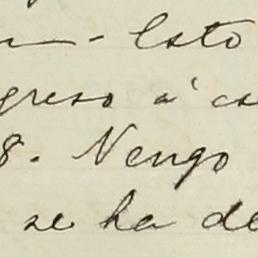 - Esto
greso á
8. Nengo
se ha de